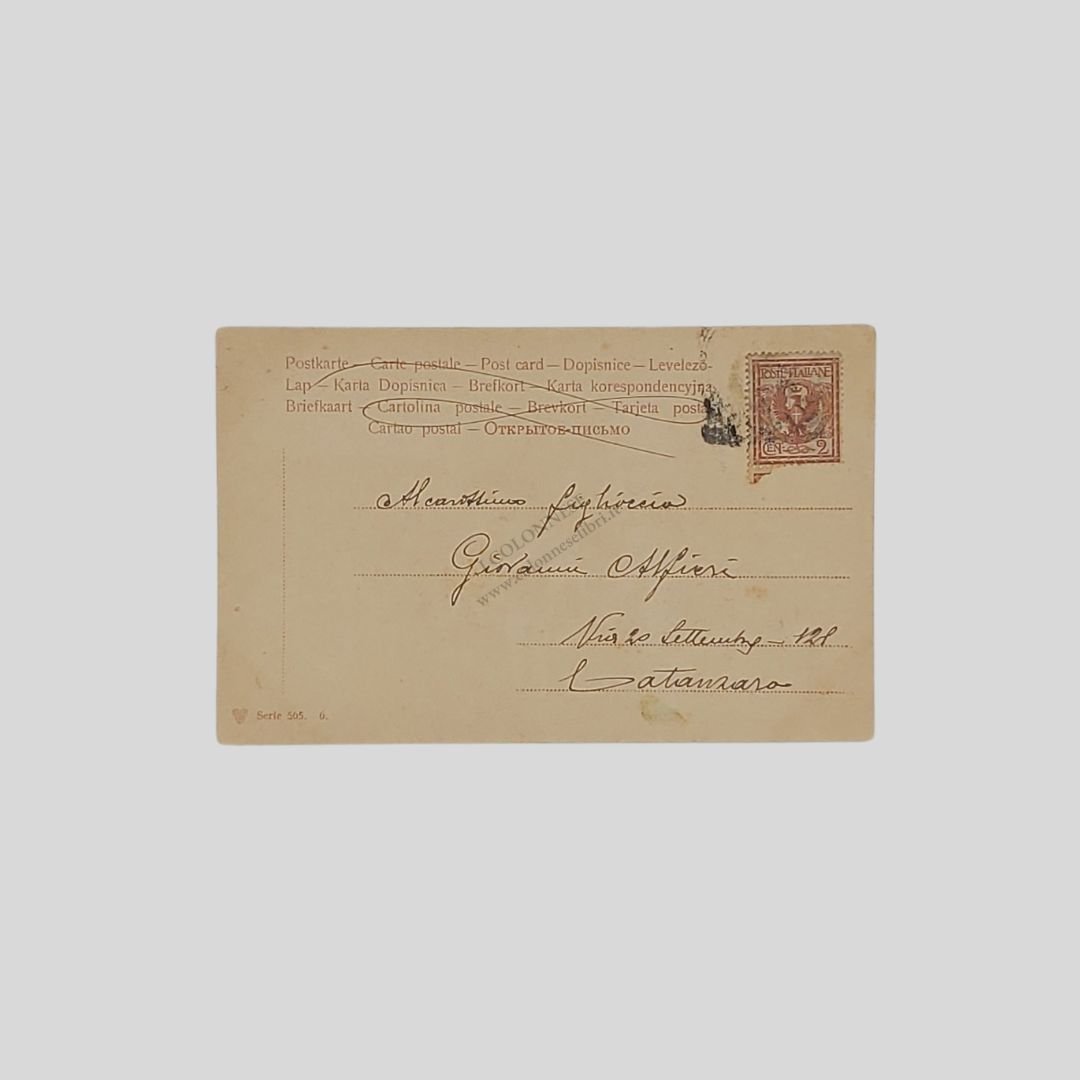 Postkarte — Carte postale — Post card — Dopisnice — Levelező-
Lap — Karta Dopisnica — Brefkort — Karta korespondencyjna
Briefkaart — Cartolina postale — Brevkort — Tarjeta posta
Cartao postal — Открытое-письмо
POSTE ITALIANE
CEN 2
Al carissimo figlioccio
Giovanni Alfieri
Via 20 Settembre — 121
Catanzaro
COLONNESE
www.colonneselibri.it
Serie 505. 6.